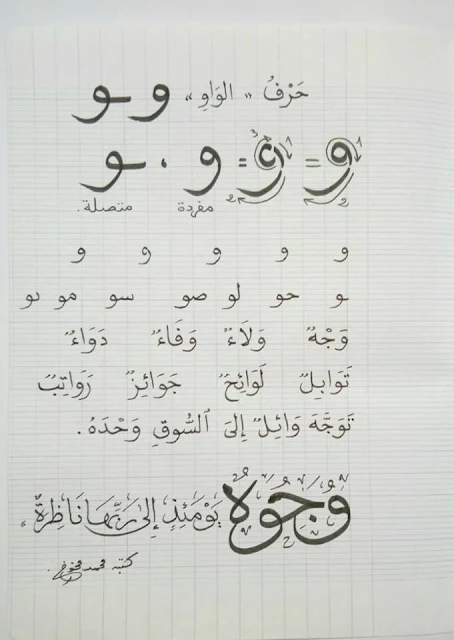 حَرْفُ " الوَاوِ " و ـو
و = و = و ، ـو
مفردة متصلة.
و و و و و
ـو حو لو صو سو مو ىو
وَجْهٌ وَلَاءٌ وَفَاءٌ دَوَاءٌ
تَوَابِلٌ لَوَائِحٌ جَوَائِزٌ رَوَاتِبٌ
تَوَجَّهَ وَائِلٌ إِلَى ٱلسُّوقِ وَحْدَهُ.
وُجُوهٌ يَوْمَئِذٍ إِلَى رَبِّهَا نَاظِرَةٌ
كتبه محمد